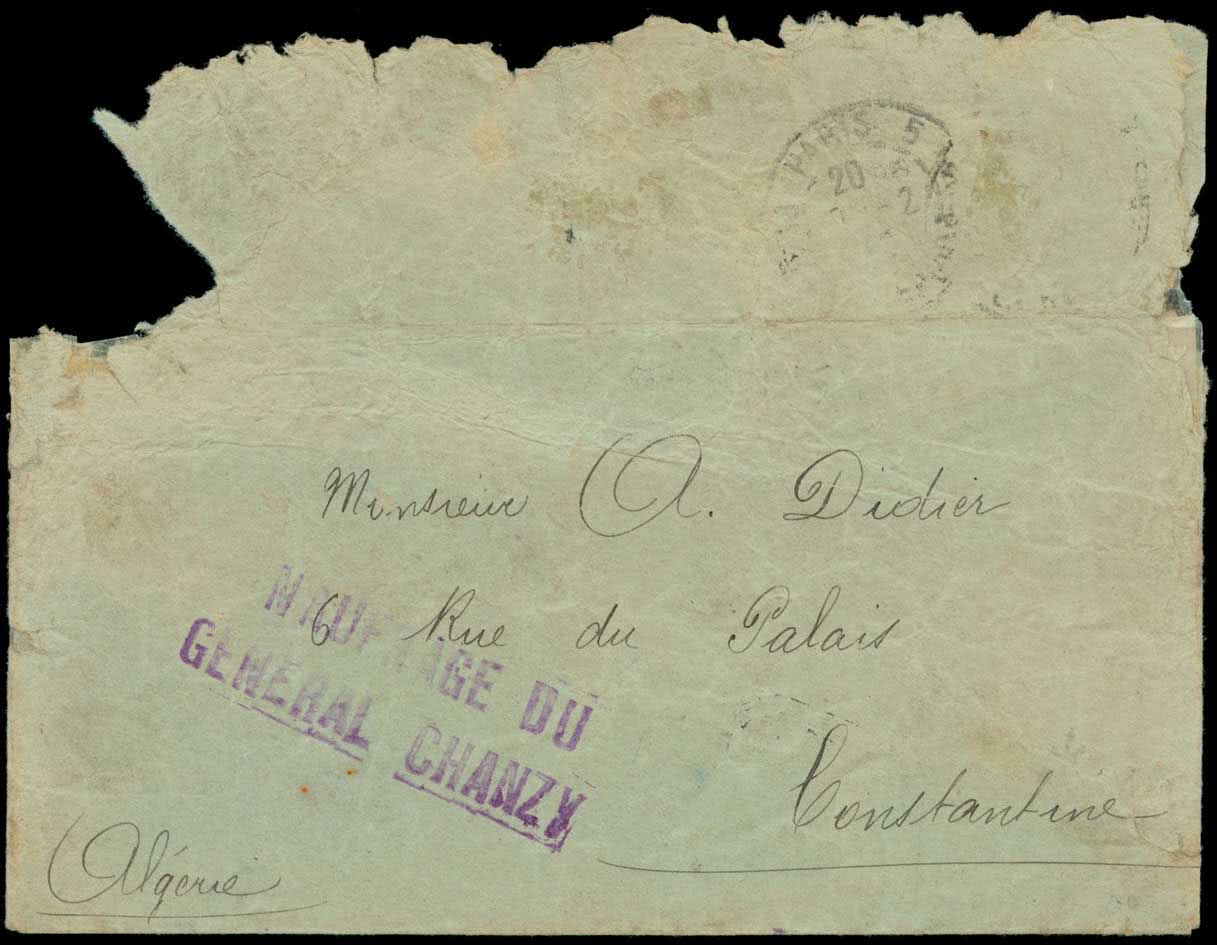 PARIS 5
20
2
Monsieur A. Didier
NAUFRAGE DU
6 Rue du Palais
GENERAL CHANZY
Constantine
Algérie